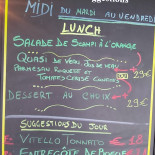 MIDI DU MARDI AU VENDREDI
LUNCH
SALADE DE SCAMPI À L'ORANGE
QUASI DE VEAU
PARMESAN ROQUETTE ET
TOMATES CERISE
29€
DESSERT AU CHOIX
29€
SUGGESTIONS DU JOUR
VITELLO TONNATO
ENTRECÔTE DE